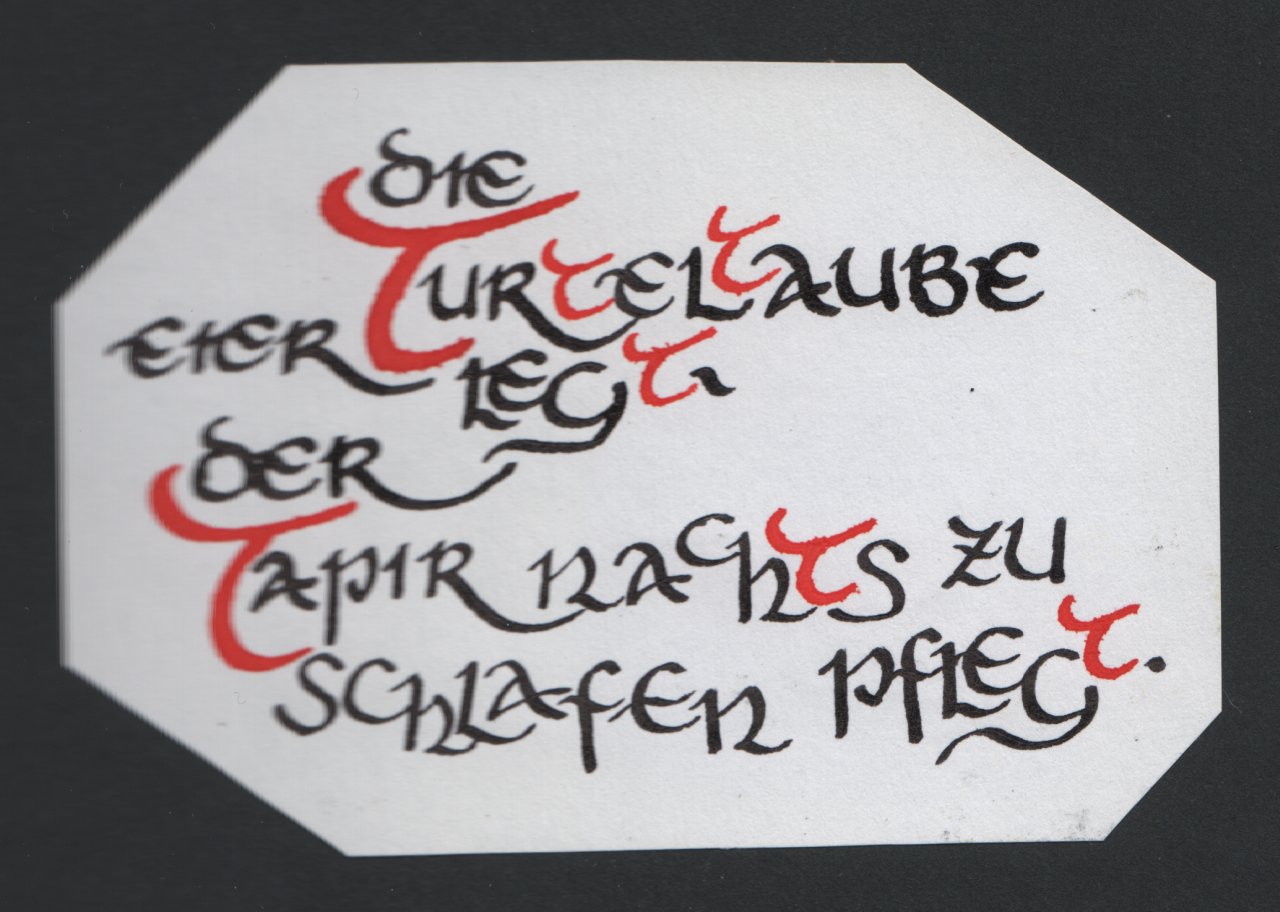 die
Turteltaube
eier legt,
der
Tapir nachts zu
schlafen pflegt.